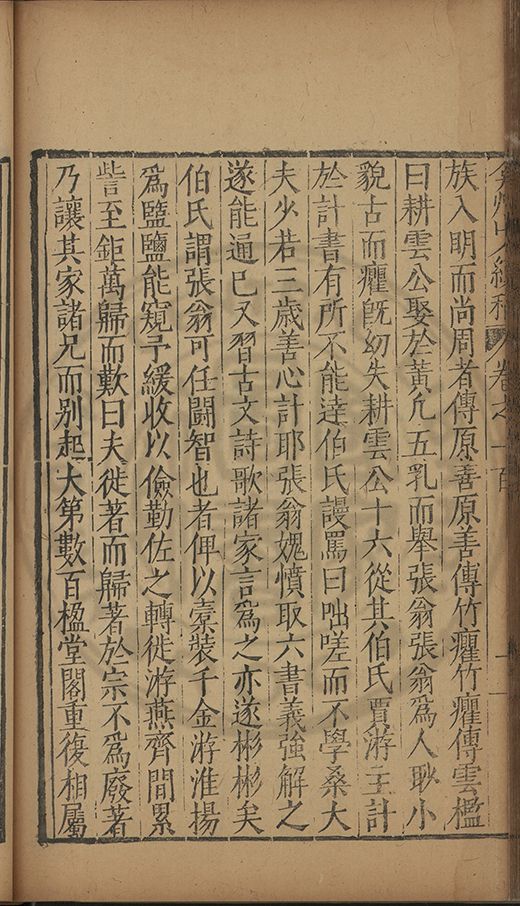 弇州山人續稿 卷之一百
族入明而尚周者傳原善原善傳竹癯竹癯傳雲檻
曰耕雲公娶於黃凢五乳而舉張翁張翁爲人眇小
貌古而癯旣幼失耕雲公十六從其伯氏賈游主計
於計書有所不能達伯氏謾罵曰咄嗟而不學桑大
夫少若三歲善心計耶張翁媿憤取六書義強解之
遂能通已又習古文詩歌諸家言爲之亦遂彬彬矣
伯氏謂張翁可任鬬智也者俾以橐裝千金游淮揚
爲鹽鹽能窺予緩收以儉勤佐之轉徙游燕齊間累
訾至鉅萬歸而歎曰夫徙著而歸著於宗不爲廢著
乃讓其家諸兄而別起大第數百楹堂閣重復相屬